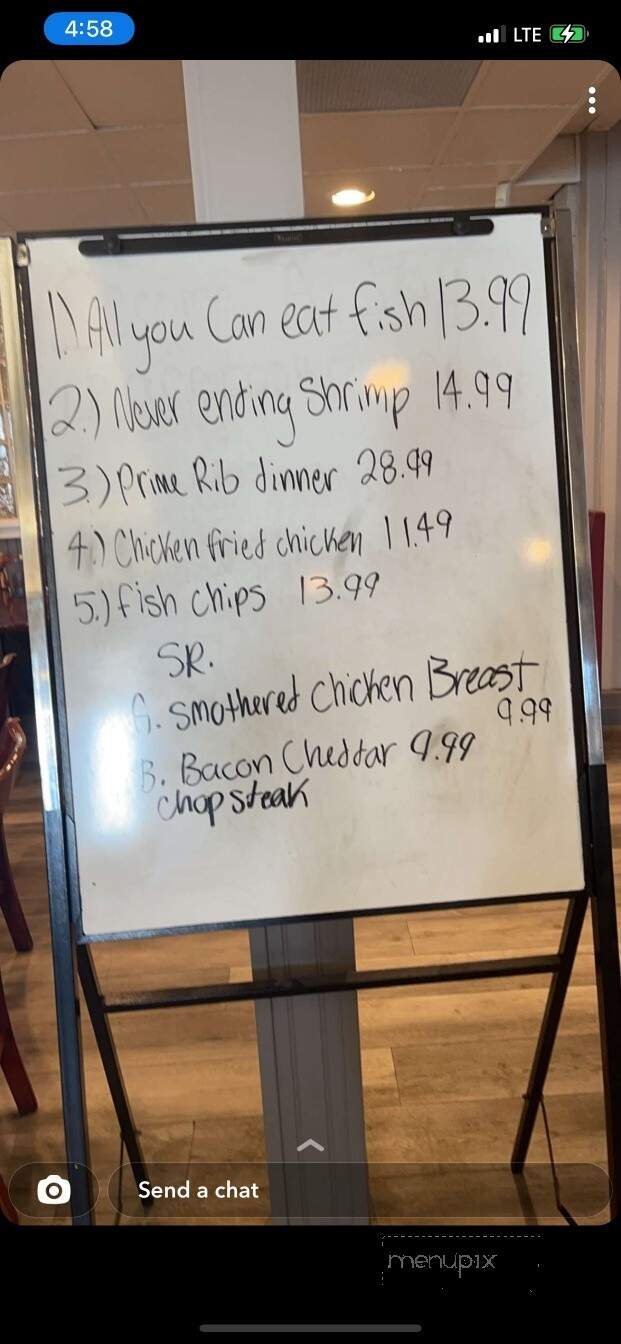 4:58
LTE
1.) All you Can eat fish 13.99
2.) Never ending Shrimp 14.99
3.) Prime Rib dinner 28.99
4.) Chicken fried chicken 11.49
5.) fish chips 13.99
SR.
. smothered chicken Breast
9.99
B. Bacon Cheddar 9.99
chop steak
Send a chat
menupix